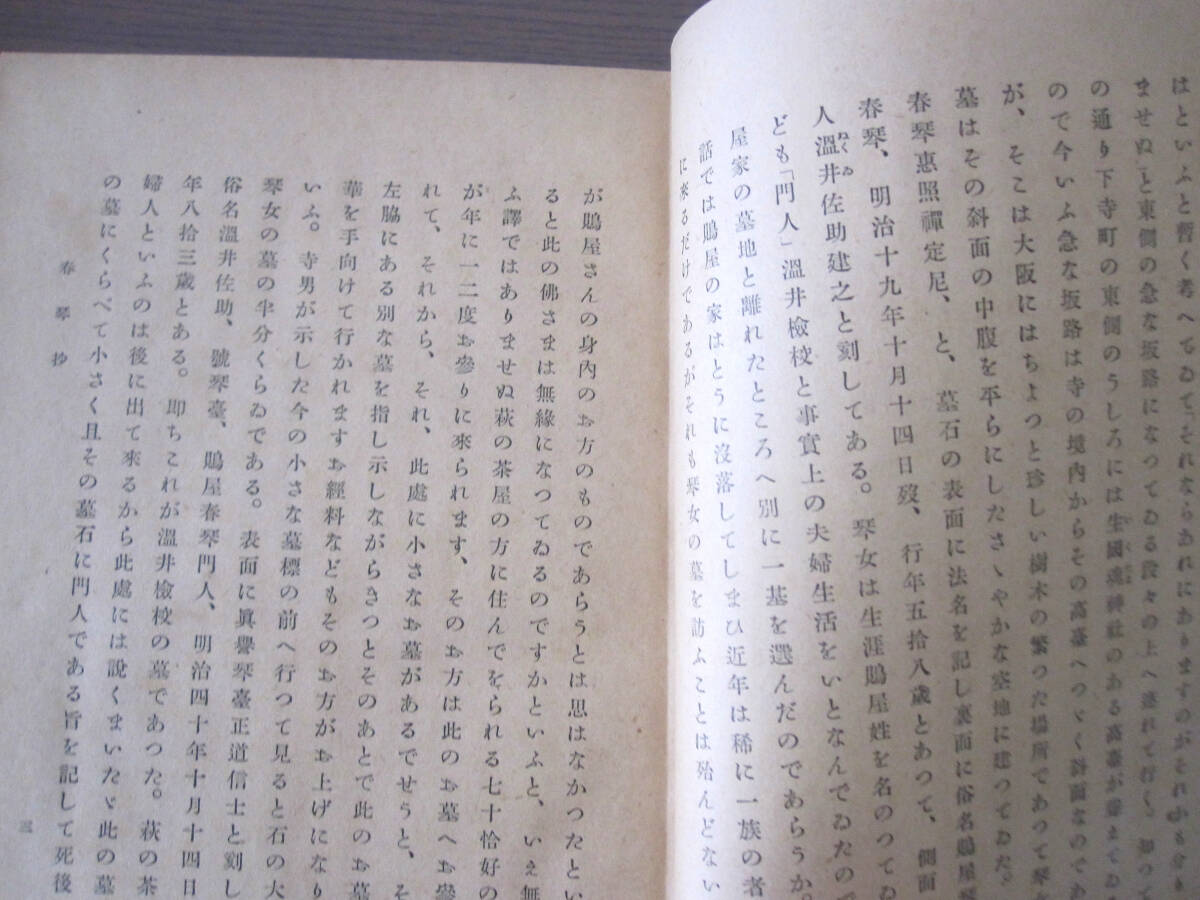 はといふと暫く考へてゐて「それならあれにありますのがそれかも分り
ませぬ」と東側の急な坂路になつてゐる段々の上へ連れて行く。知つて
の通り下寺町の東側のうしろには生國魂神社のある高臺が聳えてゐる
ので今いふ急な坂路は寺の境内からその高臺へつゞく斜面なのであ
が、そこは大阪にはちよつと珍しい樹木の繁つた場所であつて琴女
墓はその斜面の中腹を平らにしたさゝやかな空地に建つてゐた。
春琴惠照禪定尼、と、墓石の表面に法名を記し裏面に俗名鵙屋琴
春琴、明治十九年十月十四日歿、行年五拾八歳とあつて、側面
人溫井佐助建之と刻してある。琴女は生涯鵙屋姓を名のつてゐ
ども「門人」溫井檢校と事實上の夫婦生活をいとなんでゐたので
屋家の墓地と離れたところへ別に一基を選んだのであらうか。
話では鵙屋の家はとうに沒落してしまひ近年は稀に一族の者
に來るだけであるがそれも琴女の墓を訪ふことは殆んどない
が鵙屋さんの身內のお方のものであらうとは思はなかつたとい
ると此の佛さまは無緣になつてゐるのですかといふと、いえ無
ふ譯ではありませぬ萩の茶屋の方に住んでをられる七十恰好の
が年に一二度お參りに來られます、そのお方は此のお墓へお參
れて、それから、それ、此處に小さなお墓があるでせうと、そ
左脇にある別な墓を指し示しながらきつとそのあとで此のお墓
華を手向けて行かれますお經料などもそのお方がお上げになり
いふ。寺男が示した今の小さな墓標の前へ行つて見ると石の大
琴女の墓の半分くらゐである。表面に眞譽琴臺正道信士と刻し
俗名溫井佐助、號琴臺、鵙屋春琴門人、明治四十年十月十四日
年八拾三歳とある。卽ちこれが溫井檢校の墓であつた。萩の茶
婦人といふのは後に出て來るから此處には說くまいたゞ此の墓
の墓にくらべて小さく且その墓石に門人である旨を記して死後
春琴抄
三